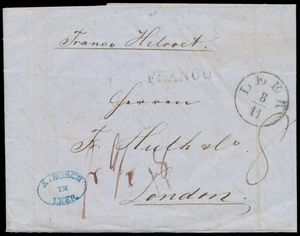 Franco Helvoet.
FRANCO
LEER
8
11
Herren
Fr. Huth & Co.
London.
IN
LEER.